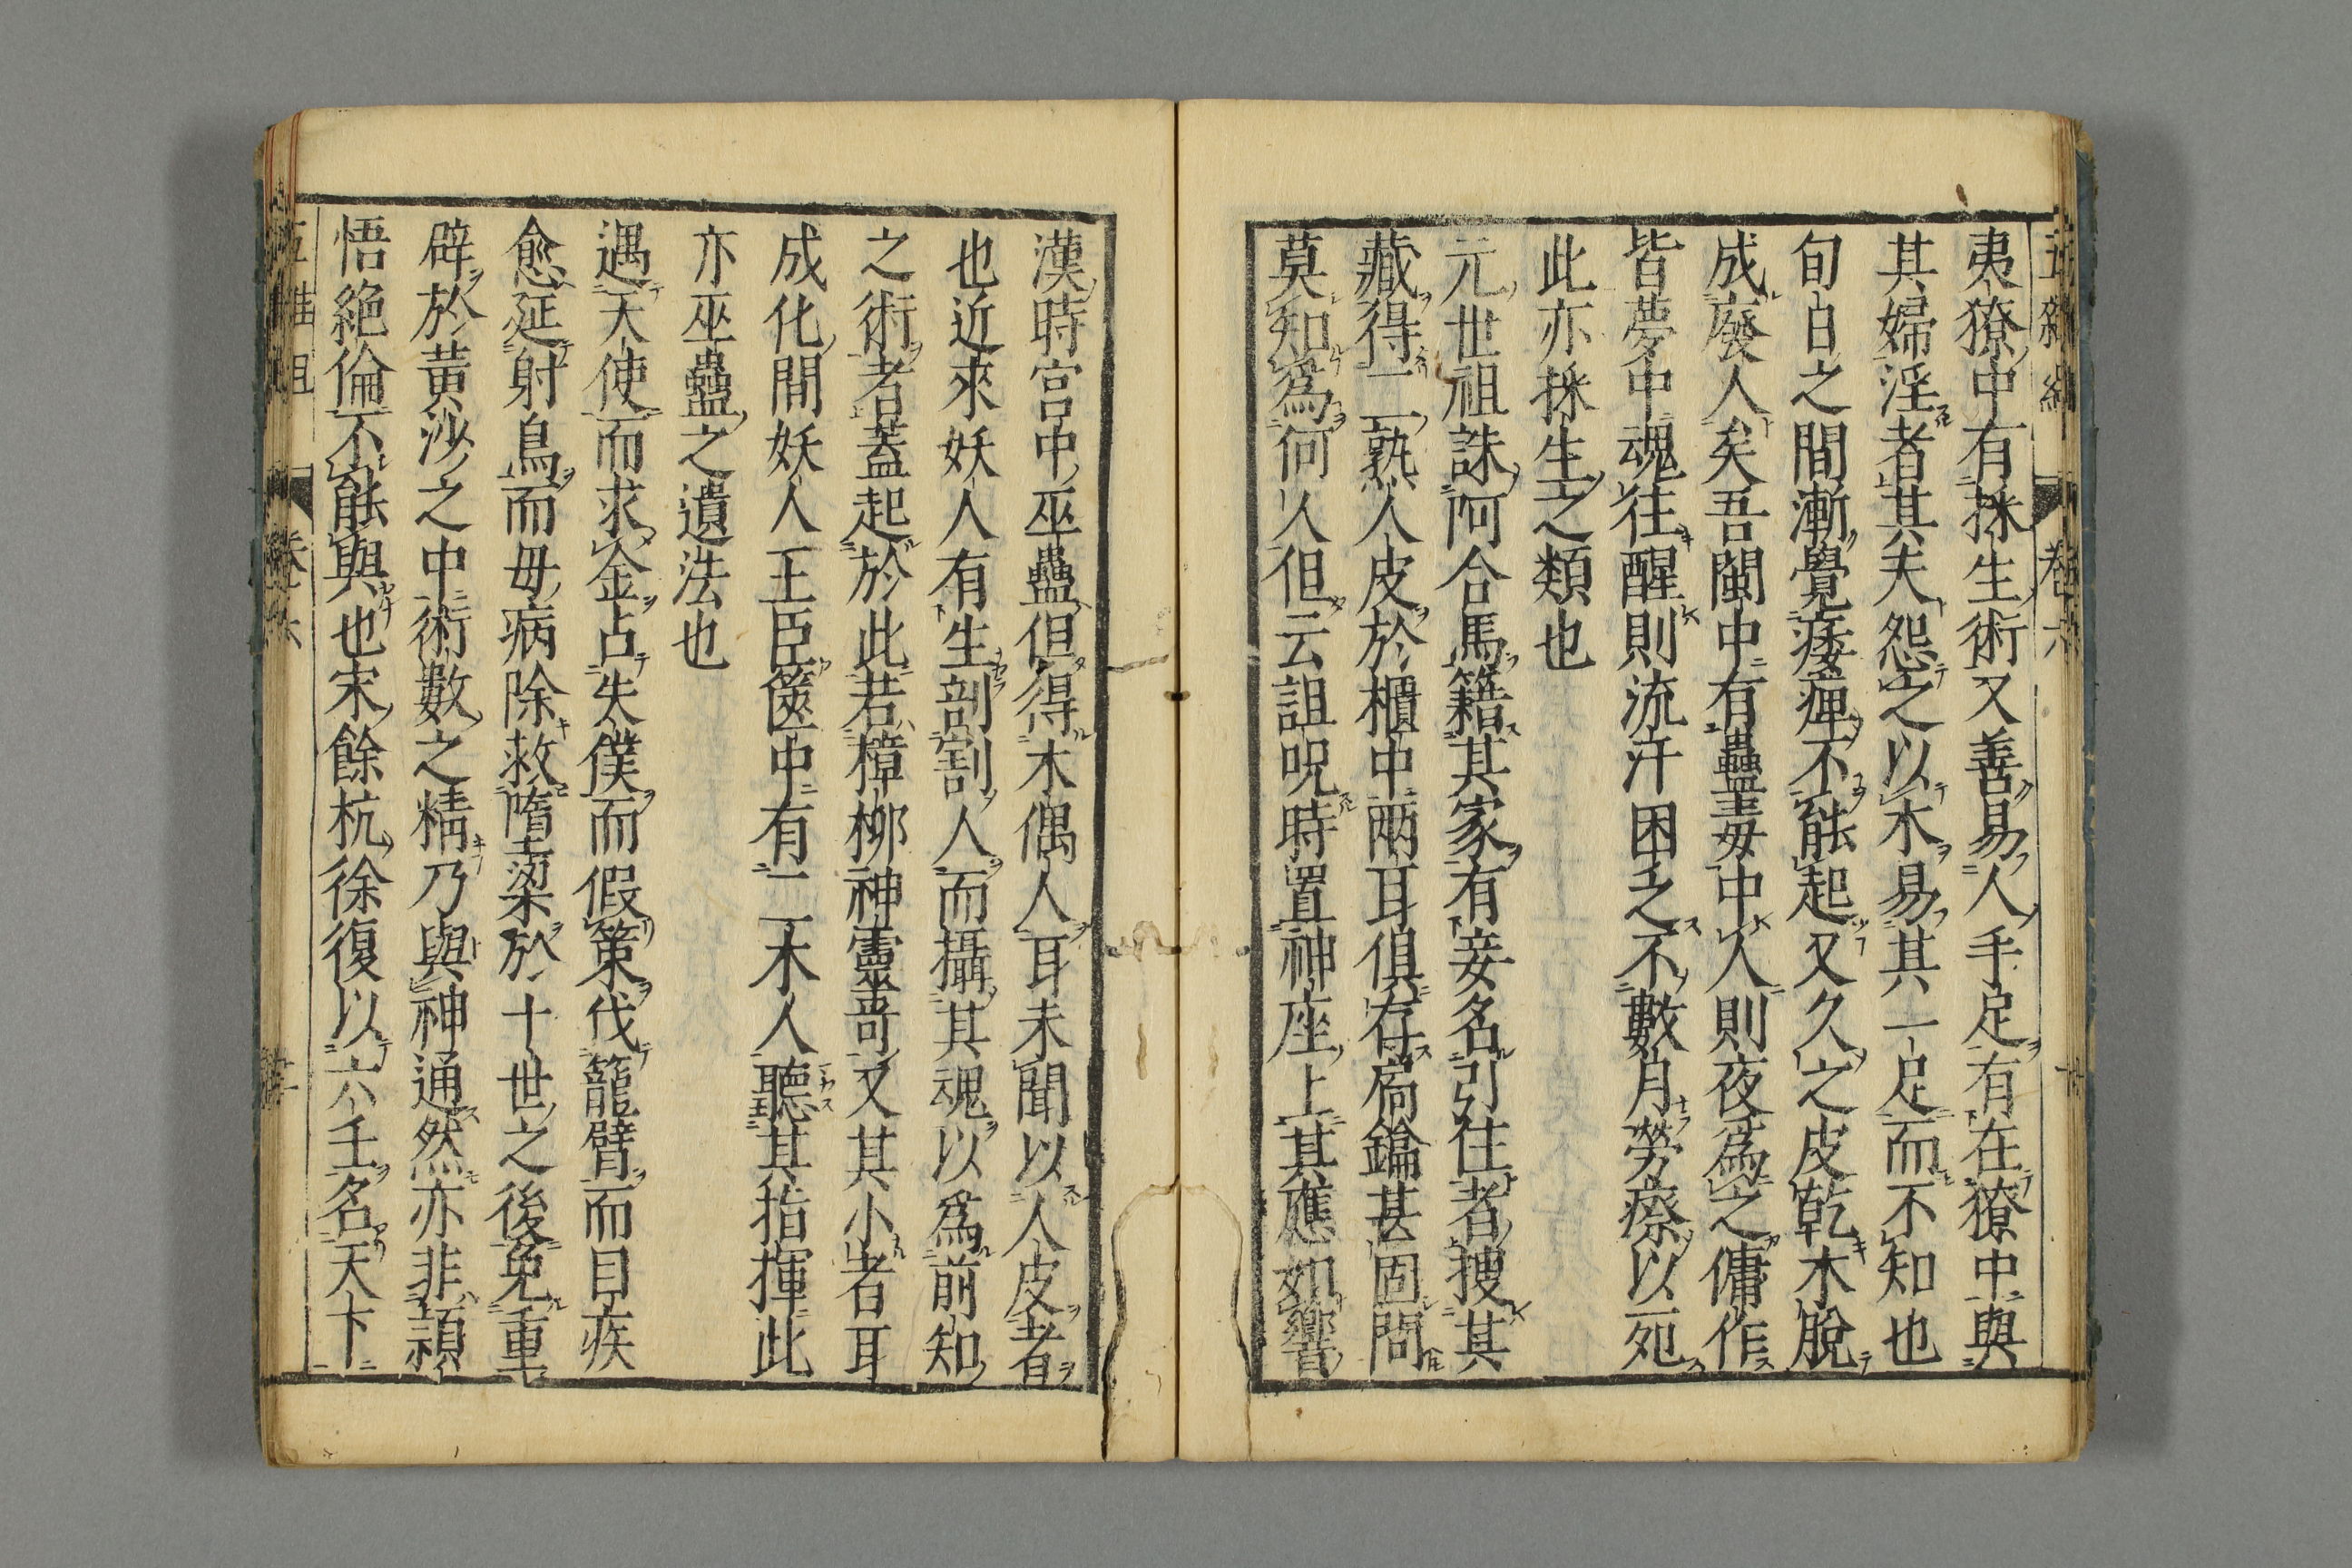 夷獠中有採生術又善易人手足有在獠中與
其婦淫者其夫怨之以木易其一足而不知也
旬日之間漸覺痿痺不能起又久之皮乾木脫
成廢人矣吾閩中有蠱毒中人則夜爲之傭作
皆夢中魂往醒則流汗困乏不數月勞瘵以死
此亦採生之類也
元世祖誅阿合馬籍其家有妾名引住者搜其
藏得二熟人皮於櫃中兩耳俱存扃鑰甚固問
莫知爲何人但云詛呪時置神座上其應如響
漢時宮中巫蠱但得木偶人耳未聞以人皮者
也近來妖人有生剖割人而攝其魂以爲前知
之術者蓋起於此若樟柳神靈哥又其小者耳
成化間妖人王臣篋中有二木人聽其指揮此
亦巫蠱之遺法也
遇天使而求金占失僕而假策伐籠臂而目疾
愈延射鳥而毋病除救隋梁於十世之後免重
辟於黃沙之中術數之精乃與神通然亦非頴
悟絶倫不能與也宋餘杭徐復以六壬名天下
卷六